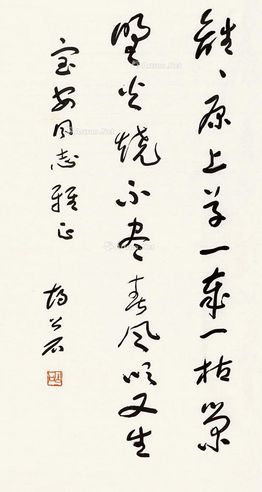 離、原上草一歲一枯榮
野火燒不盡春風吹又生
宝安同志雅正
胡公石